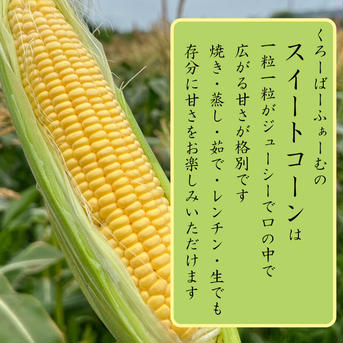 くろーばーふぁーむの
スイートコーンは
一粒一粒がジューシーで口の中で
広がる甘さが格別です
焼き・蒸し・茹で・レンチン・生でも
存分に甘さをお楽しみいただけます